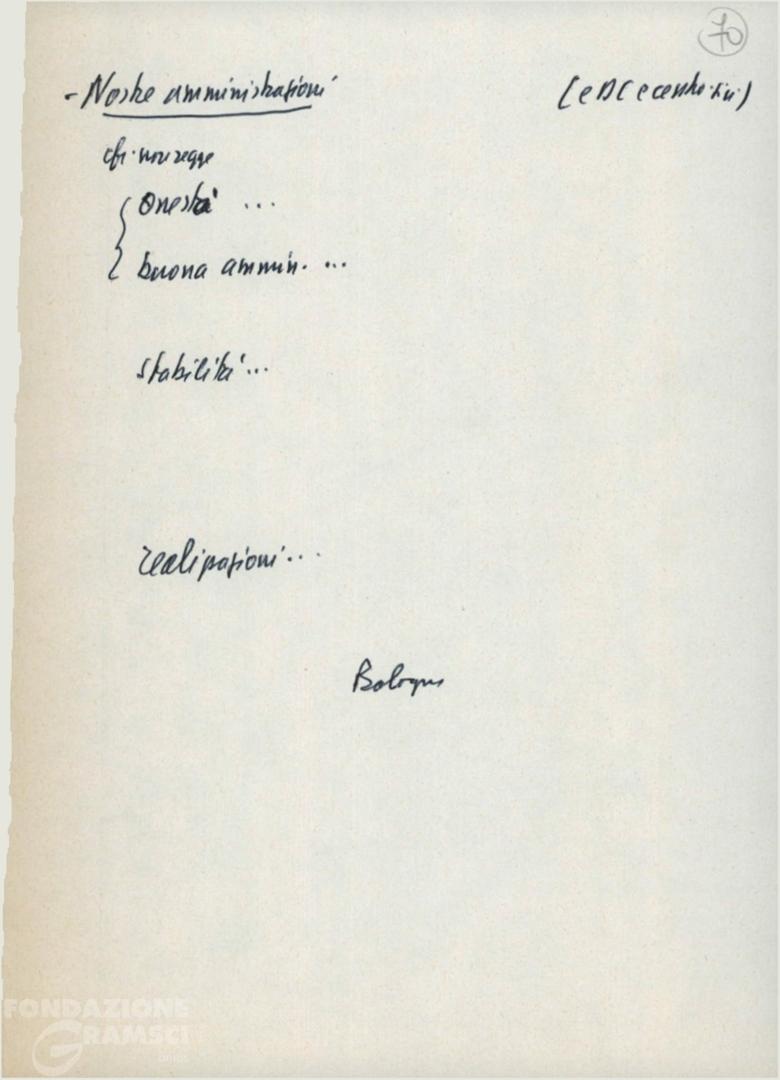 70
- Nostre amministrazioni (e DC e centro-sin.)
cfr. non regge
onestà ...
buona ammin. ...
stabilità ...
realizzazioni ...
Bologna
FONDAZIONE
GRAMSCI
onlus